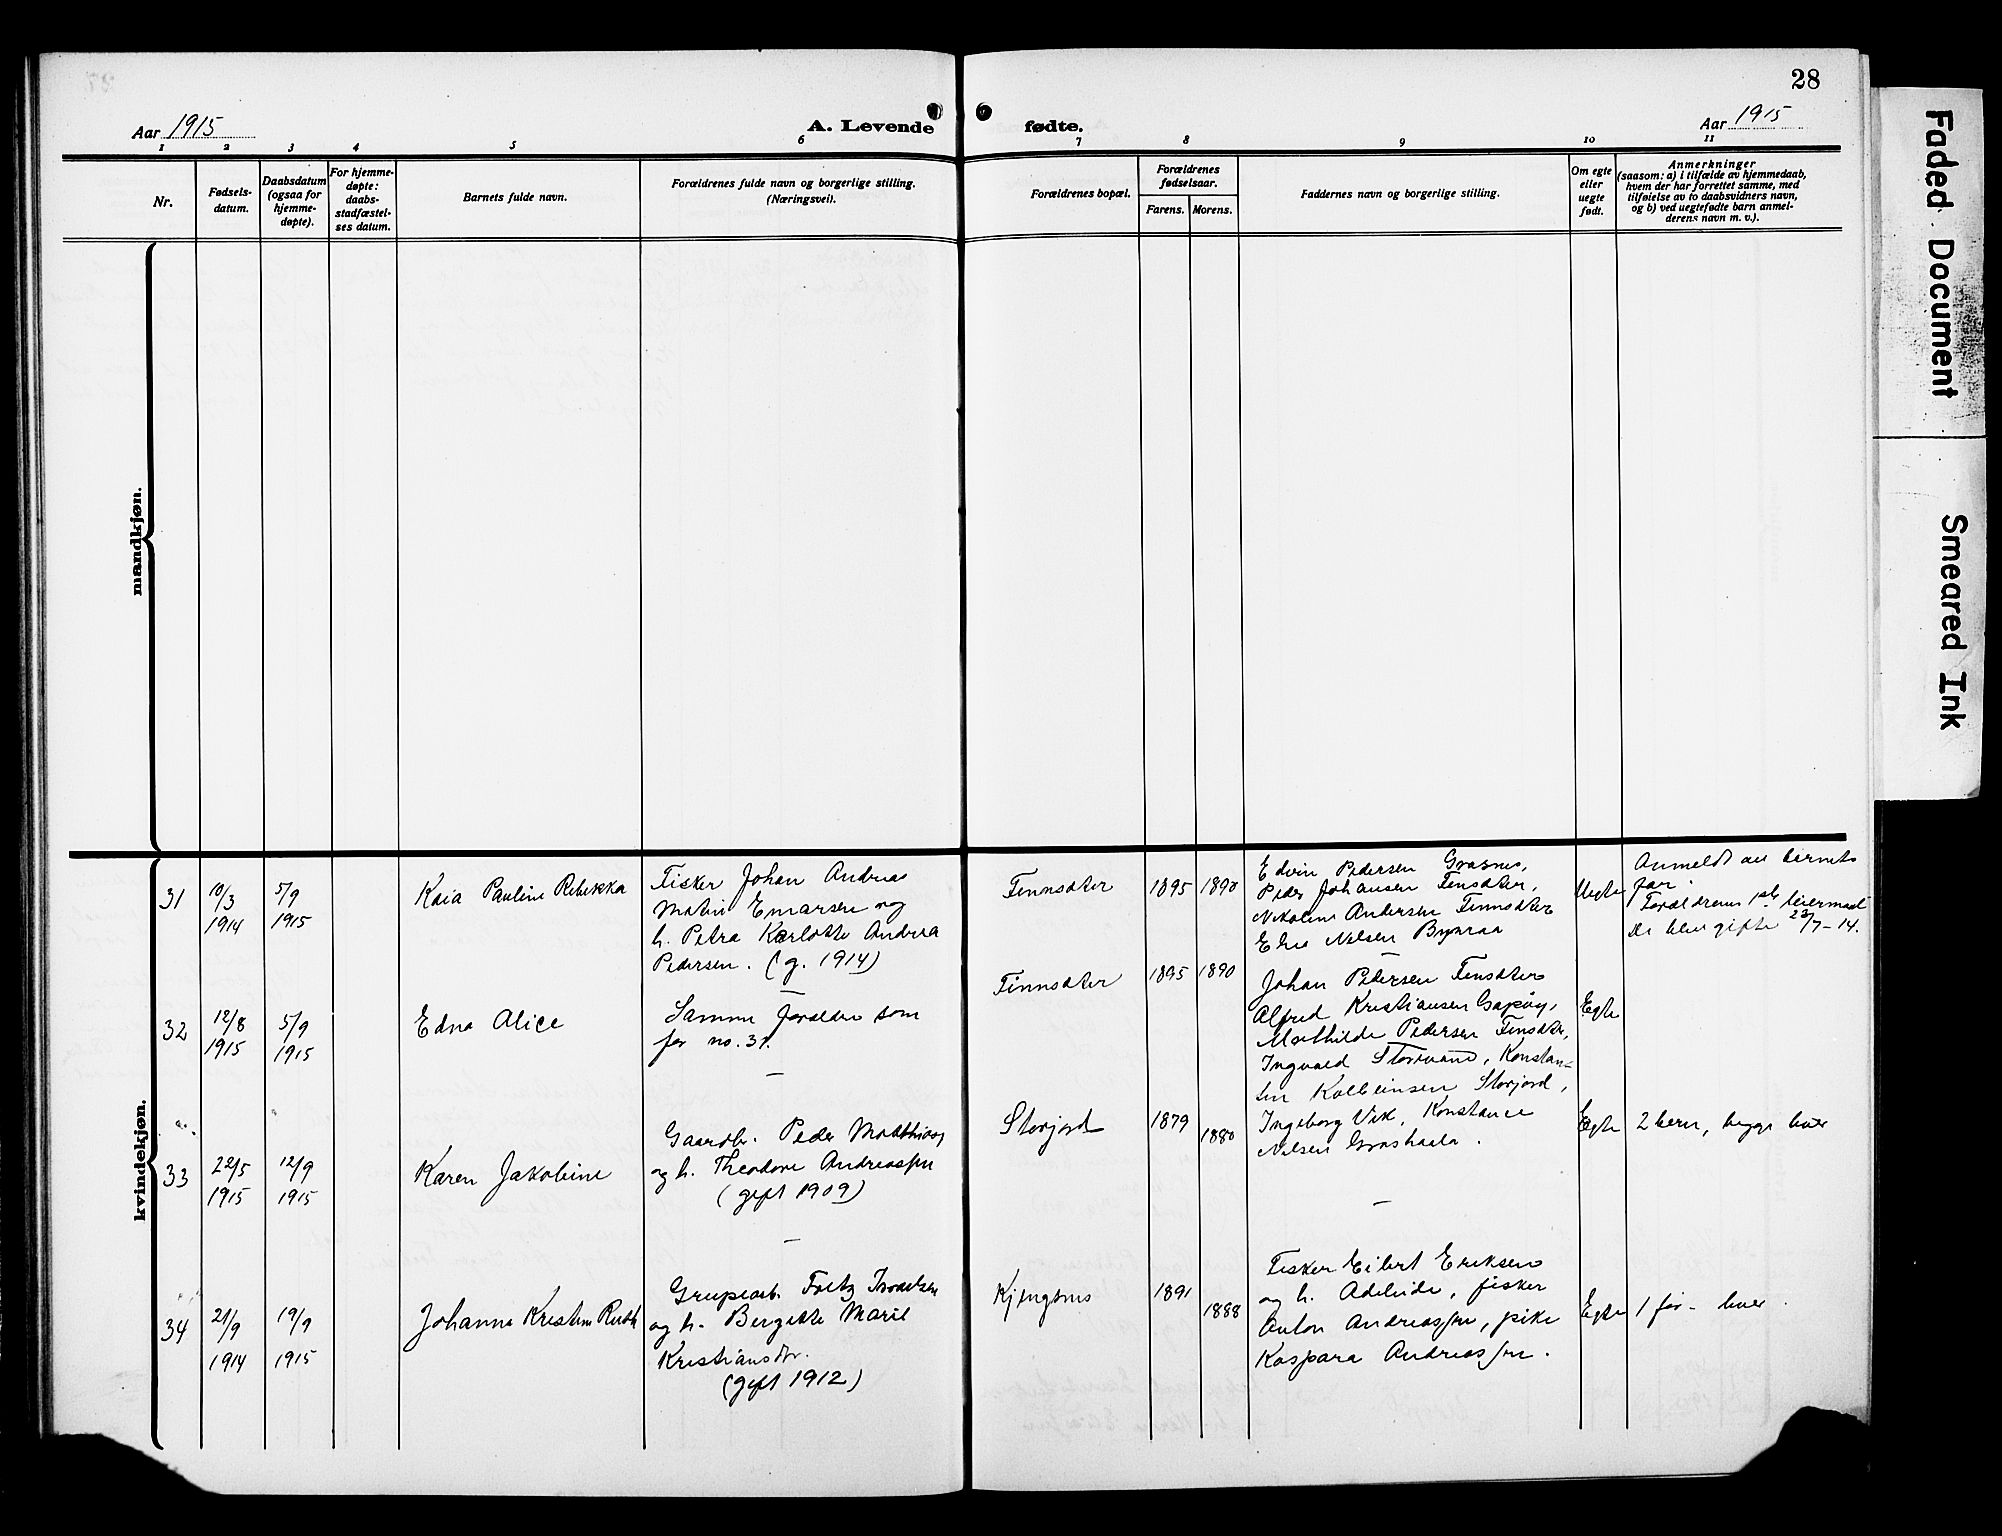 28
Aar 1915
A. Levende fødte.
Aar 1915
1 2 3 4 5 6 7 8 9 10 11
Nr.
Fødsels-
datum.
Daabsdatum
(ogsaa for
hjemme-
døpte).
For hjemme-
døpte:
daabs-
stadfæstel-
ses datum.
Barnets fulde navn.
Forældrenes fulde navn og borgerlige stilling.
(Næringsvei).
Forældrenes bopæl.
Forældrenes
fødselsaar.
Farens. Morens.
Faddernes navn og borgerlige stilling.
Om egte
eller
uegte
født.
Anmerkninger
(saasom: a) i tilfælde av hjemmedaab,
hvem der har forrettet samme, med
tilføielse av to daabsvidners navn,
og b) ved uegtefødte barn anmel-
derens navn m. v.).
mandkjøn.
kvindekjøn.
31
10/3
1914
5/9
1915
Kaia Pauline Rebekka
Fisker Johan Andreas
Matin Emarsen og
h. Petra Karlotte Andrea
Pedersen. (g. 1914)
Finnsæter
1895 1890
Edvin Pedersen Grasnes,
Peder Johansen Finsæter,
Nikoline Andersen Finnsæter
Nilsen
Uegte
Anmeldt av barnets
far.
Forældrenes 1ste leiermaal
De blev gifte 23/7-14.
32
12/8
1915
5/9
1915
Edna Alice
Samme forældre som
for no. 31.
Finnsæter
1895 1890
Johan Pedersen Finsæter
Alfred Kristiansen
Mathilde Pedersen Finsæter,
Ingvald Storvand, Konstan-
Kolbeinsen Storjord,
Ingeborg Vik, Konstance
Nilsen
Egte
33
22/5
1915
12/9
1915
Karen Jakobine
Gaardbr. Peder Matthias
og h. Theodore Andreassen
(gift 1909)
Storjord
1879
1880
Egte
2 barn, begge lever
34
21/9
1914
19/9
1915
Johanne Kristine Ruth
Grupearb. Fritz Israelsen
og h. Bergitte Marie
Kristiansdtr.
(gift 1912)
Kjengsnes
1891
1888
Fisker Eilert Eriksen
og h. Adeleide, fisker
Anton Andreassen, pike
Kaspara Andreassen.
Egte
1 før - lever.
Faded Document
Smeared Ink